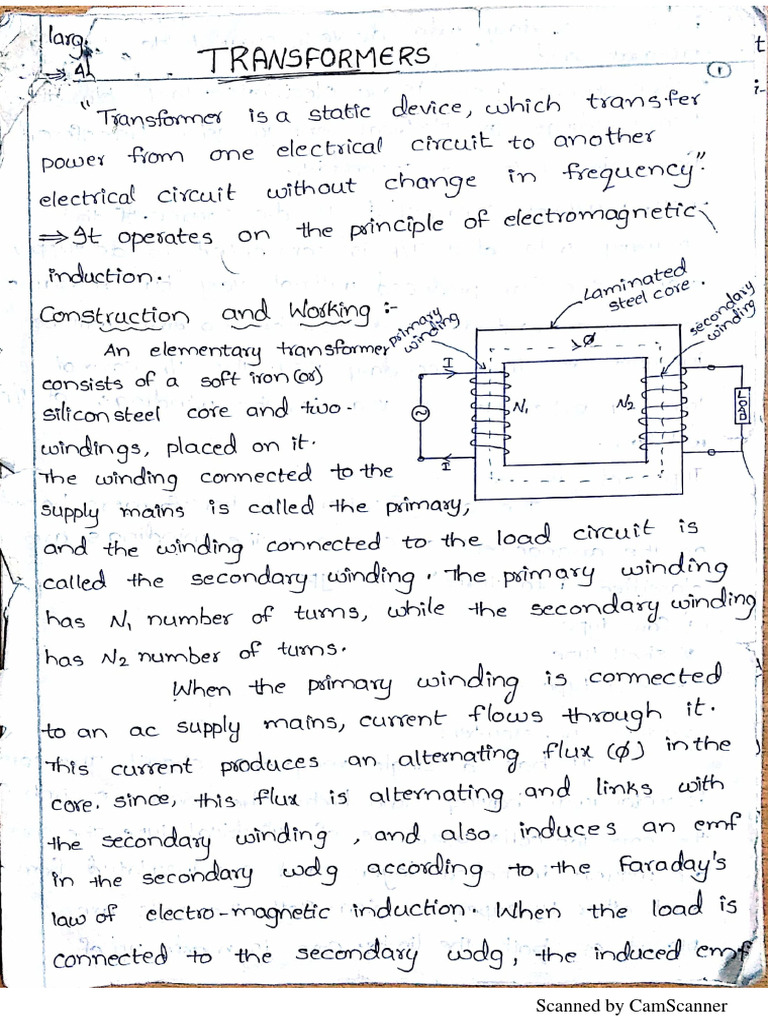 larg
⇒ Ah
TRANSFORMERS
1
t
i-
"Transformer is a static device, which transfer
power from one electrical circuit to another
electrical circuit without change in frequency".
⇒ It operates on the principle of electromagnetic
induction.
Construction and Working :-
An elementary transformer
consists of a soft iron (or)
silicon steel core and two-
windings, placed on it.
The winding connected to the
supply mains is called the primary,
primary
winding
Laminated
steel core.
secondary
winding
ϕ
I
I
N1
N2
LOAD
and the winding connected to the load circuit is
called the secondary winding. The primary winding
has N1 number of turns, while the secondary winding
has N2 number of turns.
When the primary winding is connected
to an ac supply mains, current flows through it.
This current produces an alternating flux (ϕ) in the
core. since, this flux is alternating and links with
the secondary winding, and also induces an emf
in the secondary wdg according to the Faraday's
law of electro-magnetic induction. When the load is
connected to the secondary wdg, the induced emf
Scanned by CamScanner